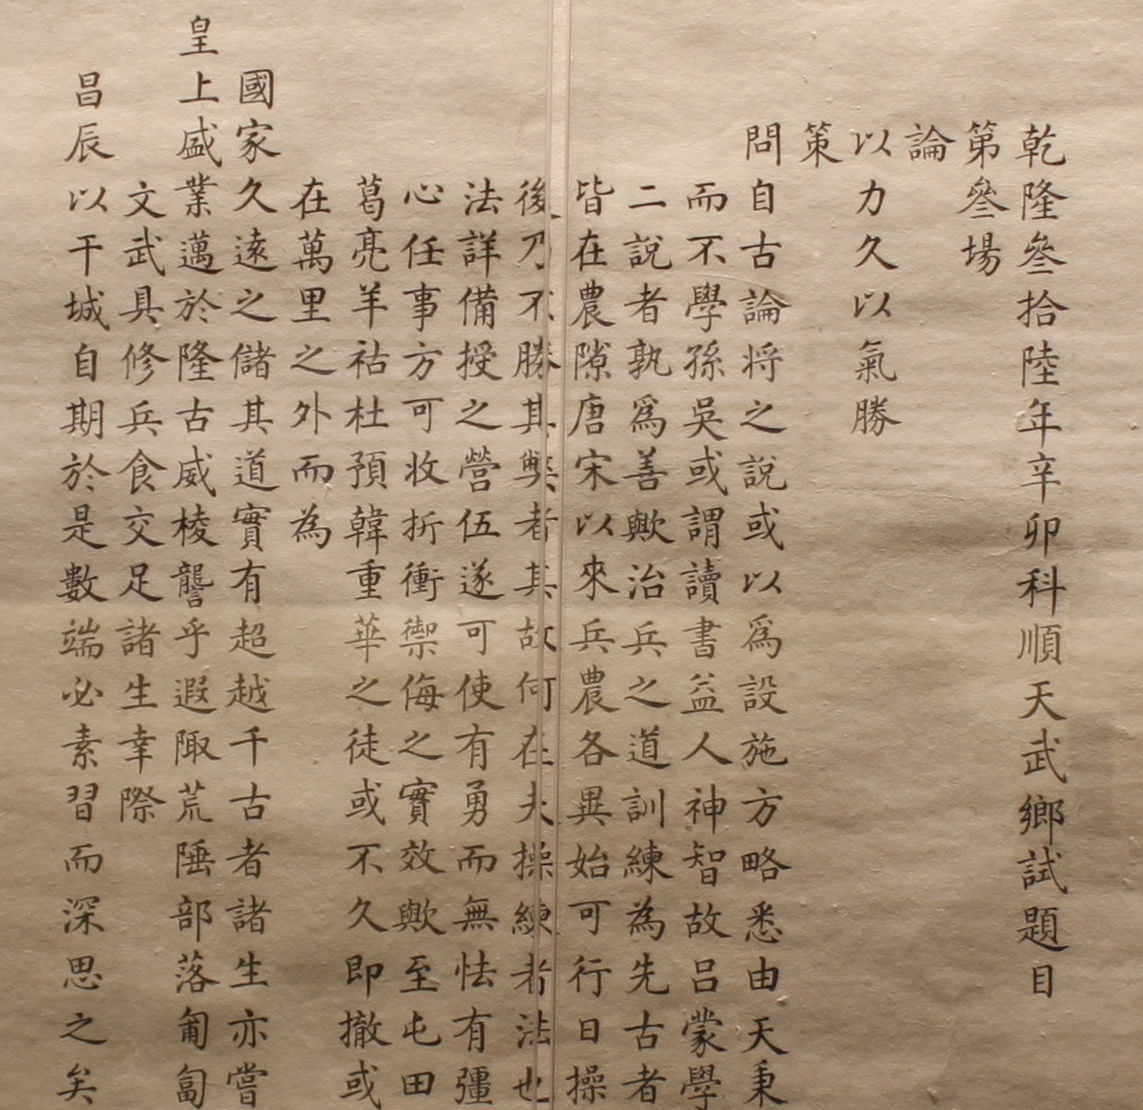 乾隆叄拾陸年辛卯科順天武鄉試題目
第叄場
論
以力久以氣勝
策
問自古論将之說或以爲設施方略悉由天秉
而不學孫吳或謂讀書益人神智故呂蒙學
二說者孰爲善歟治兵之道訓練為先古者
皆在農隙唐宋以來兵農各異始可行日操
後乃不勝其弊者其故何在夫操練者法也
法詳備授之營伍遂可使有勇而無怯有彊
心任事方可收折衝禦侮之實效歟至屯田
葛亮羊祜杜預韓重華之徒或不久即撤或
在萬里之外而為
國家久遠之儲其道實有超越千古者諸生亦嘗
皇上盛業邁於隆古威棱讋乎遐陬荒陲部落匍匐
文武具修兵食交足諸生幸際
昌辰以干城自期於是數端必素習而深思之矣